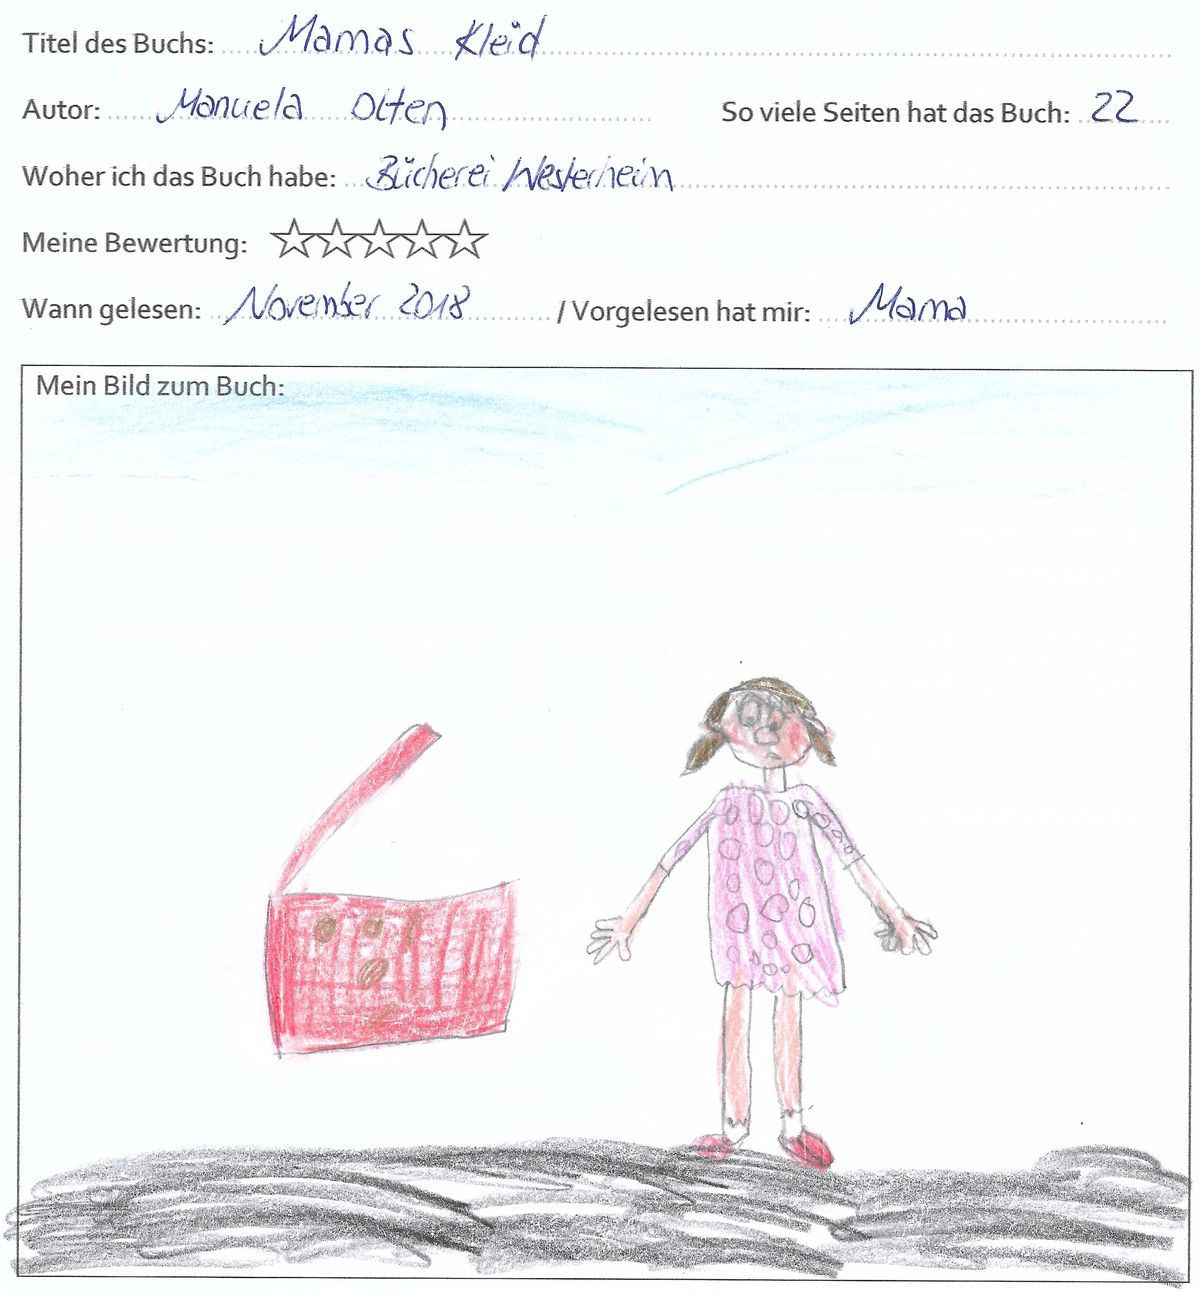 Titel des Buchs: Mamas Kleid
Autor: Manuela Olten So viele Seiten hat das Buch: 22
Woher ich das Buch habe: Bücherei Westerheim
Meine Bewertung:
Wann gelesen: November 2018 / Vorgelesen hat mir: Mama
Mein Bild zum Buch: